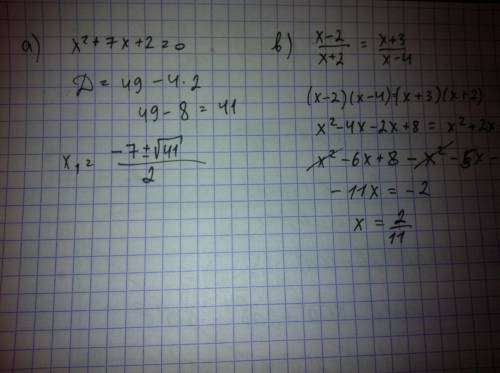 а) x²+7x+2=0
D = 49 - 4·2
49 - 8 = 41
x₁ = (-7±√41)/2
в) (x-2)/(x+2) = (x+3)/(x-4)
(x-2)(x-4)=(x+3)(x+2)
x²-4x-2x+8 = x²+2x
x²-6x+8-x²-5x-
-11x = -2
x = 2/11